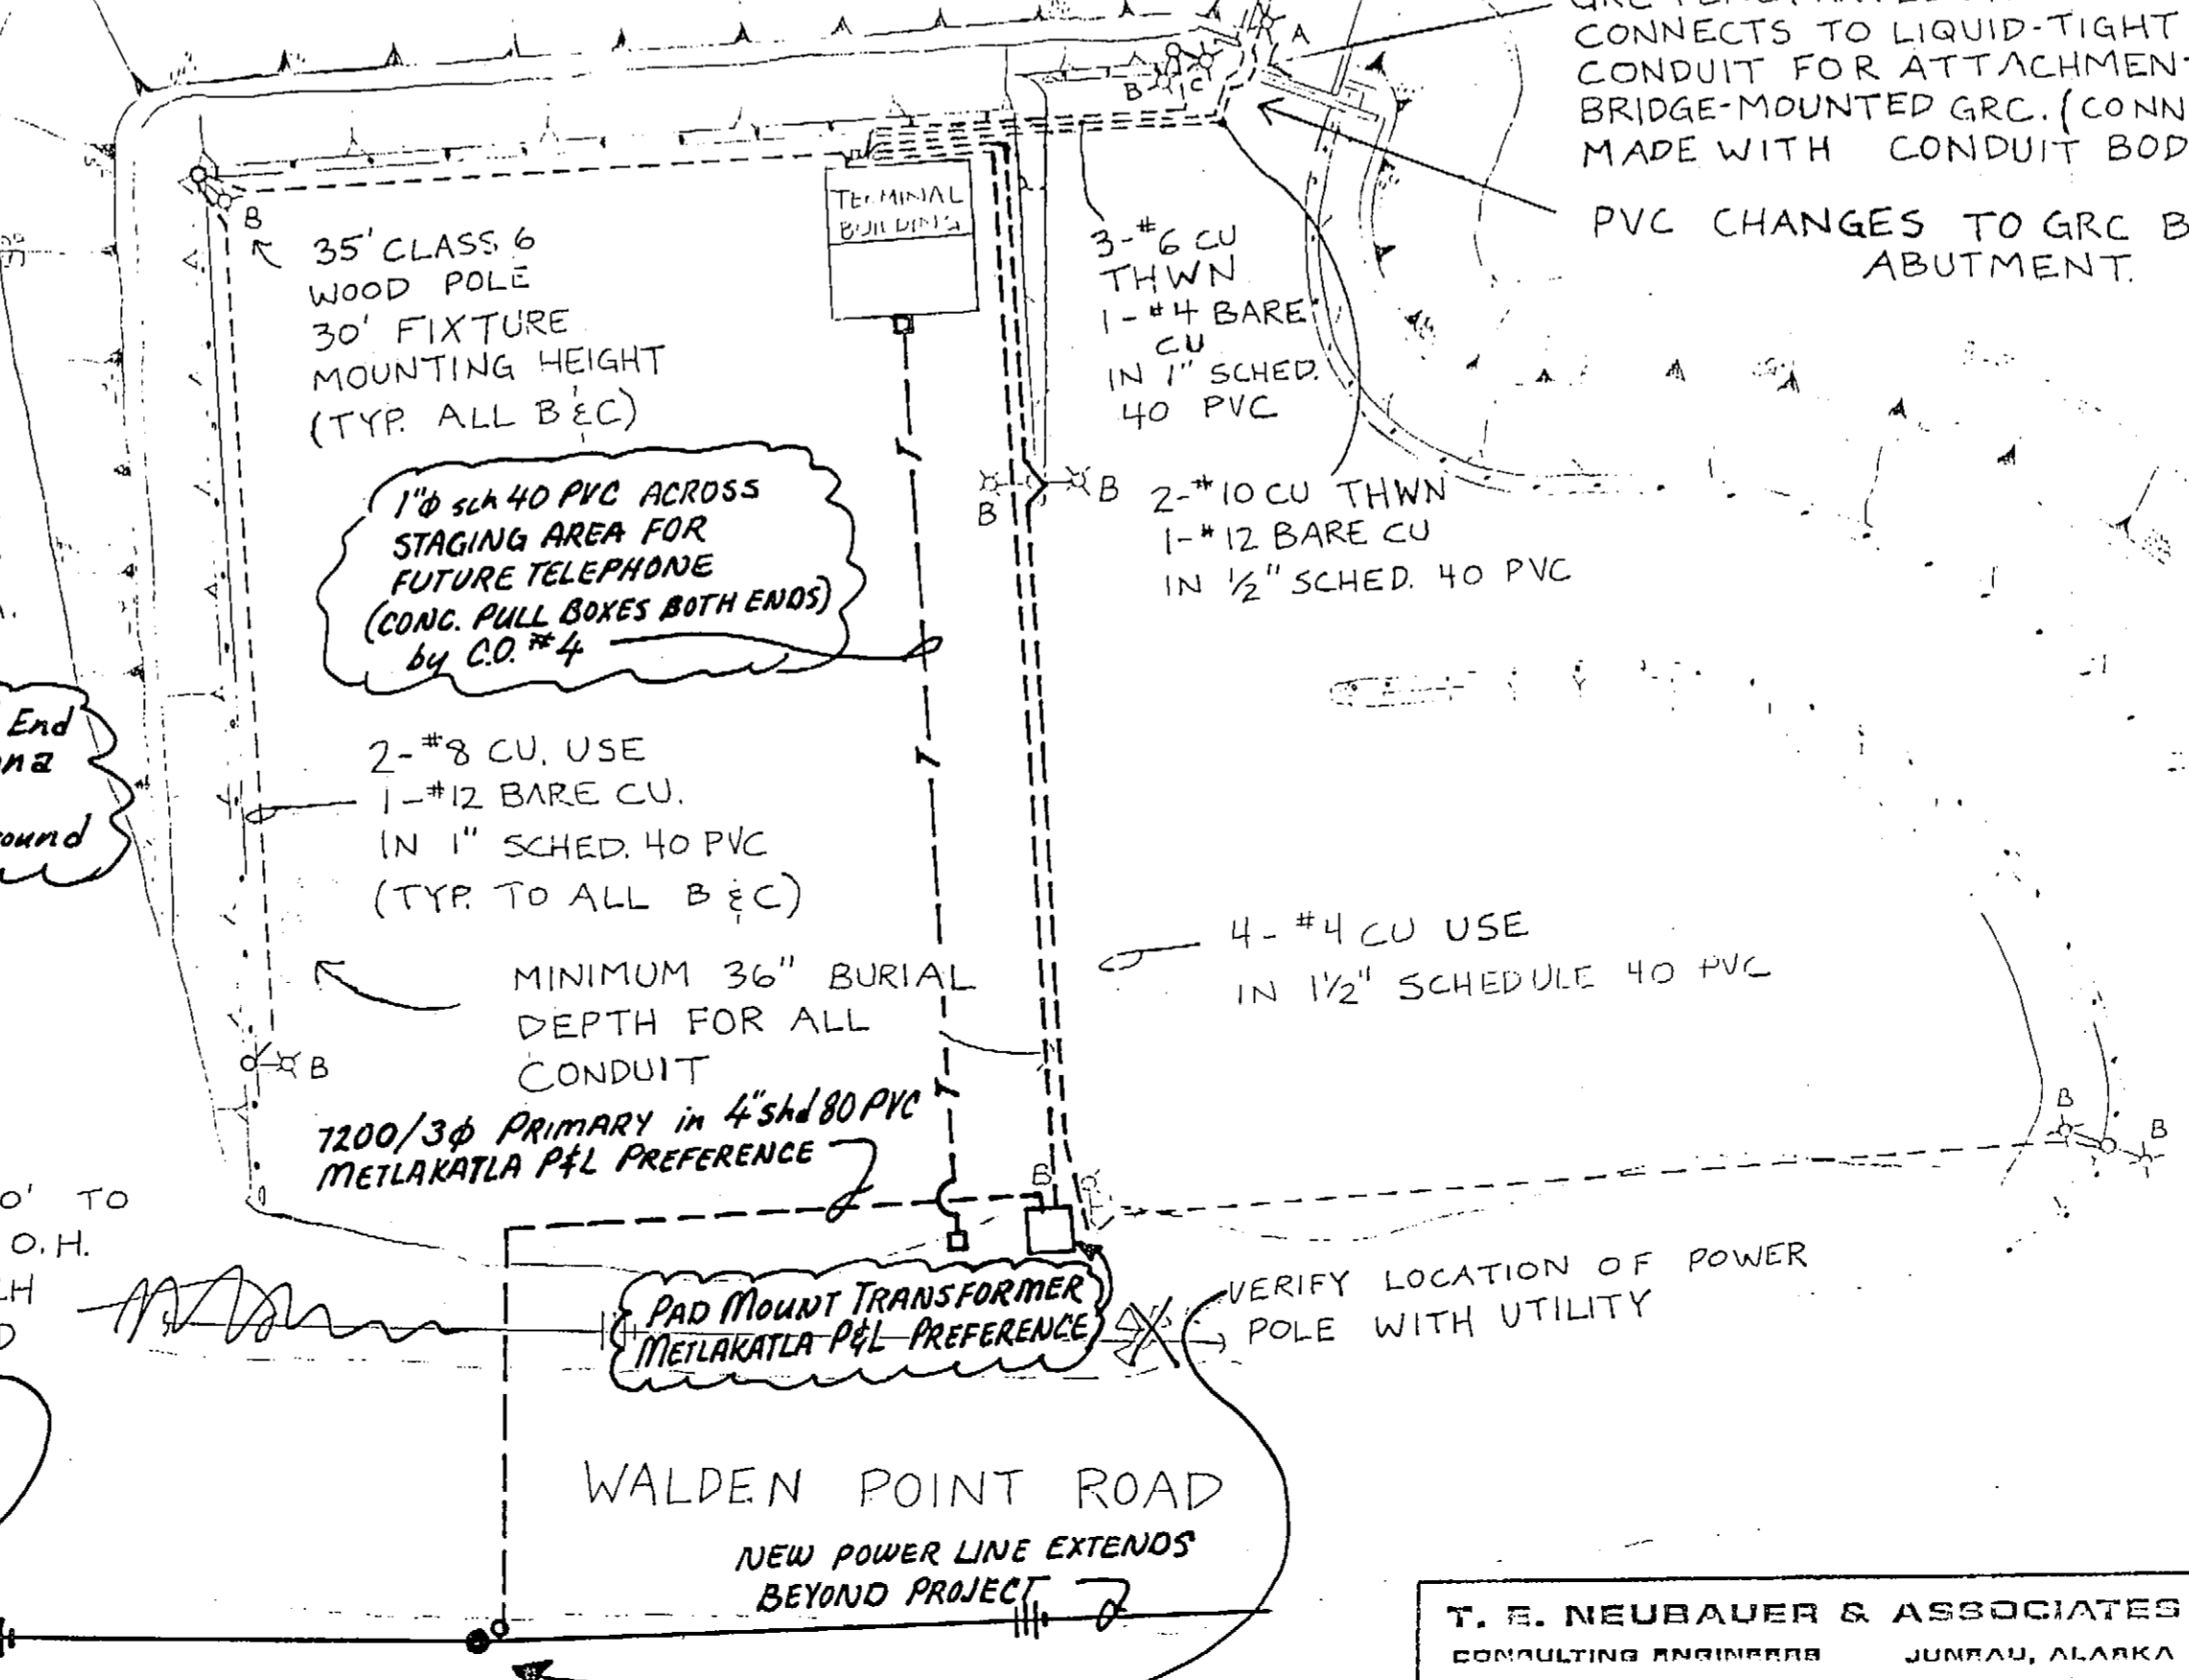 CONNECTS TO LIQUID-TIGHT
CONDUIT FOR
BRIDGE-MOUNTED GRC.
MADE WITH CONDUIT
PVC CHANGES TO GRC
ABUTMENT.
A
B
C
TERMINAL
BUILDING
B
35' CLASS 6
WOOD POLE
30' FIXTURE
MOUNTING HEIGHT
(TYP. ALL B & C)
3-#6 CU
THWN
1-#4 BARE
CU
IN 1" SCHED.
40 PVC
1"φ sch 40 PVC ACROSS
STAGING AREA FOR
FUTURE TELEPHONE
(CONC. PULL BOXES BOTH ENDS)
by C.O. #4
B
B
2-#10 CU THWN
1-#12 BARE CU
IN 1/2" SCHED. 40 PVC
T
End
2-#8 CU. USE
1-#12 BARE CU.
IN 1" SCHED. 40 PVC
(TYP. TO ALL B & C)
T
4-#4 CU USE
IN 1 1/2" SCHEDULE 40 PVC
MINIMUM 36" BURIAL
DEPTH FOR ALL
CONDUIT
B
T
7200/3φ PRIMARY in 4" shd 80 PVC
METLAKATLA P&L PREFERENCE
B
B
B
TO
O.H.
PAD MOUNT TRANSFORMER
METLAKATLA P&L PREFERENCE
VERIFY LOCATION OF POWER
POLE WITH UTILITY
WALDEN POINT ROAD
NEW POWER LINE EXTENDS
BEYOND PROJECT
T. E. NEUBAUER & ASSOCIATES
CONSULTING ENGINEERS JUNEAU, ALASKA